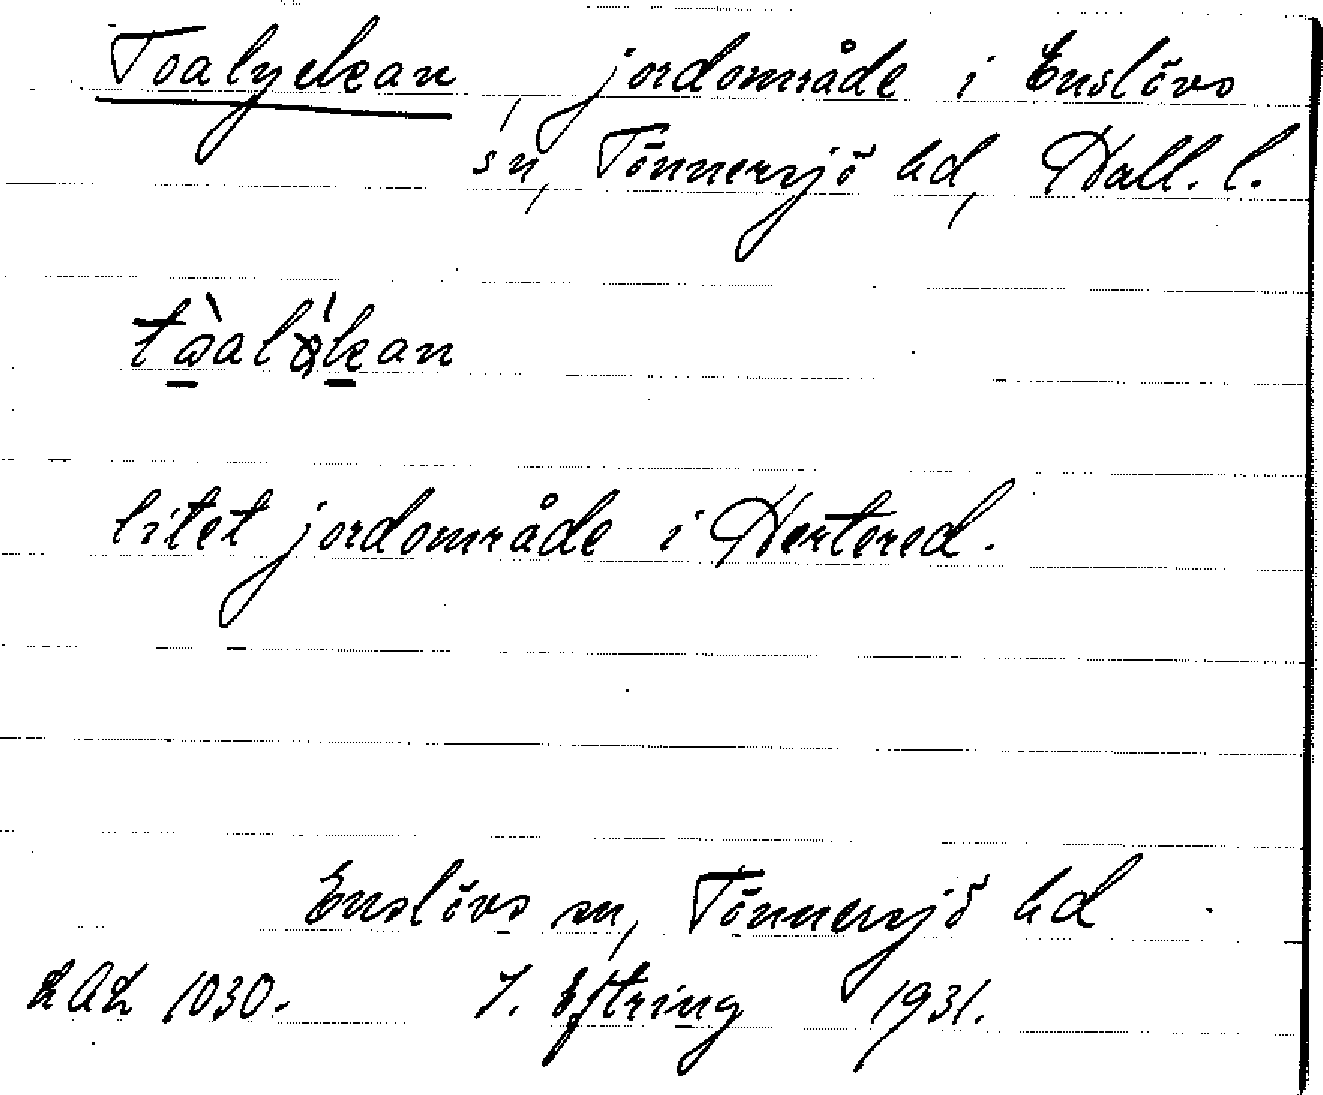 Toalyckan, jordområde i Enslövs
sn, Tönnersjö hd, Hall. l.
litet jordområde i Hertered.
Enslövs sn, Tönnersjö hd
LAL 1030. Eftring 1931.